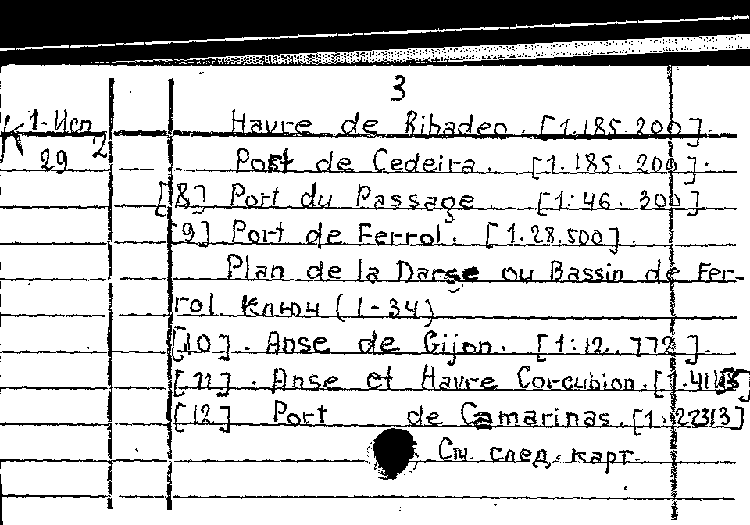 3
К 1-Исп Havre de Ribadeo. [1.185.200].
29 2 Post de Cedeira. [1.185.200].
[8] Port du Passage [1:46.300]
[9] Port de Ferrol. [1.28.500]
Plan de la Darse ou Bassin de Fer-
rol. Ключ (1-34)
[10]. Anse de Gijon. [1:12.772].
[11]. Anse et Havre Corcubion.
[12] Port de Camarinas. [1:22313]
См. след. карт.